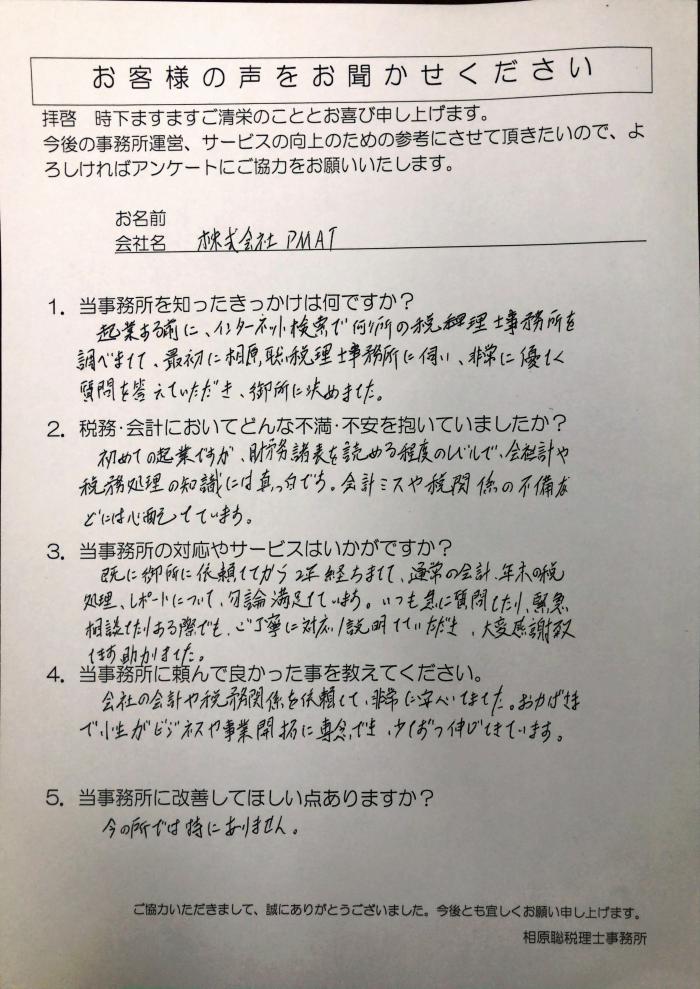 お客様の声をお聞かせください
拝啓　時下ますますご清栄のこととお喜び申し上げます。
今後の事務所運営、サービスの向上のための参考にさせて頂きたいので、よ
ろしければアンケートにご協力をお願いいたします。
お名前
会社名　株式会社PMAT
1．当事務所を知ったきっかけは何ですか？
起業する前に、インターネット検索で何ヶ所の税理士事務所を
調べまして、最初に相原聡税理士事務所に伺い、非常に優しく
質問を答えていただき、御所に決めました。
2．税務・会計においてどんな不満・不安を抱いていましたか？
初めての起業ですが、財務諸表を読める程度のレベルで、会社計や
税務処理の知識には真っ白です。会計ミスや税関係の不備な
どには心配しています。
3．当事務所の対応やサービスはいかがですか？
既に御所に依頼してから2年経ちまして、通常の会計、年末の税
処理、レポートについて、勿論満足しています。いつも急に質問したり、緊急
相談したりする際でも、ご丁寧に対応/説明していただき、大変感謝致
します 助かりました。
4．当事務所に頼んで良かった事を教えてください。
会社の会計や税務関係を依頼して、非常に安心できました。おかげさま
で小生がビジネスや事業開拓に専念でき、少しずつ伸びてきています。
5．当事務所に改善してほしい点ありますか？
今の所では特にありません。
ご協力いただきまして、誠にありがとうございました。今後とも宜しくお願い申し上げます。
相原聡税理士事務所